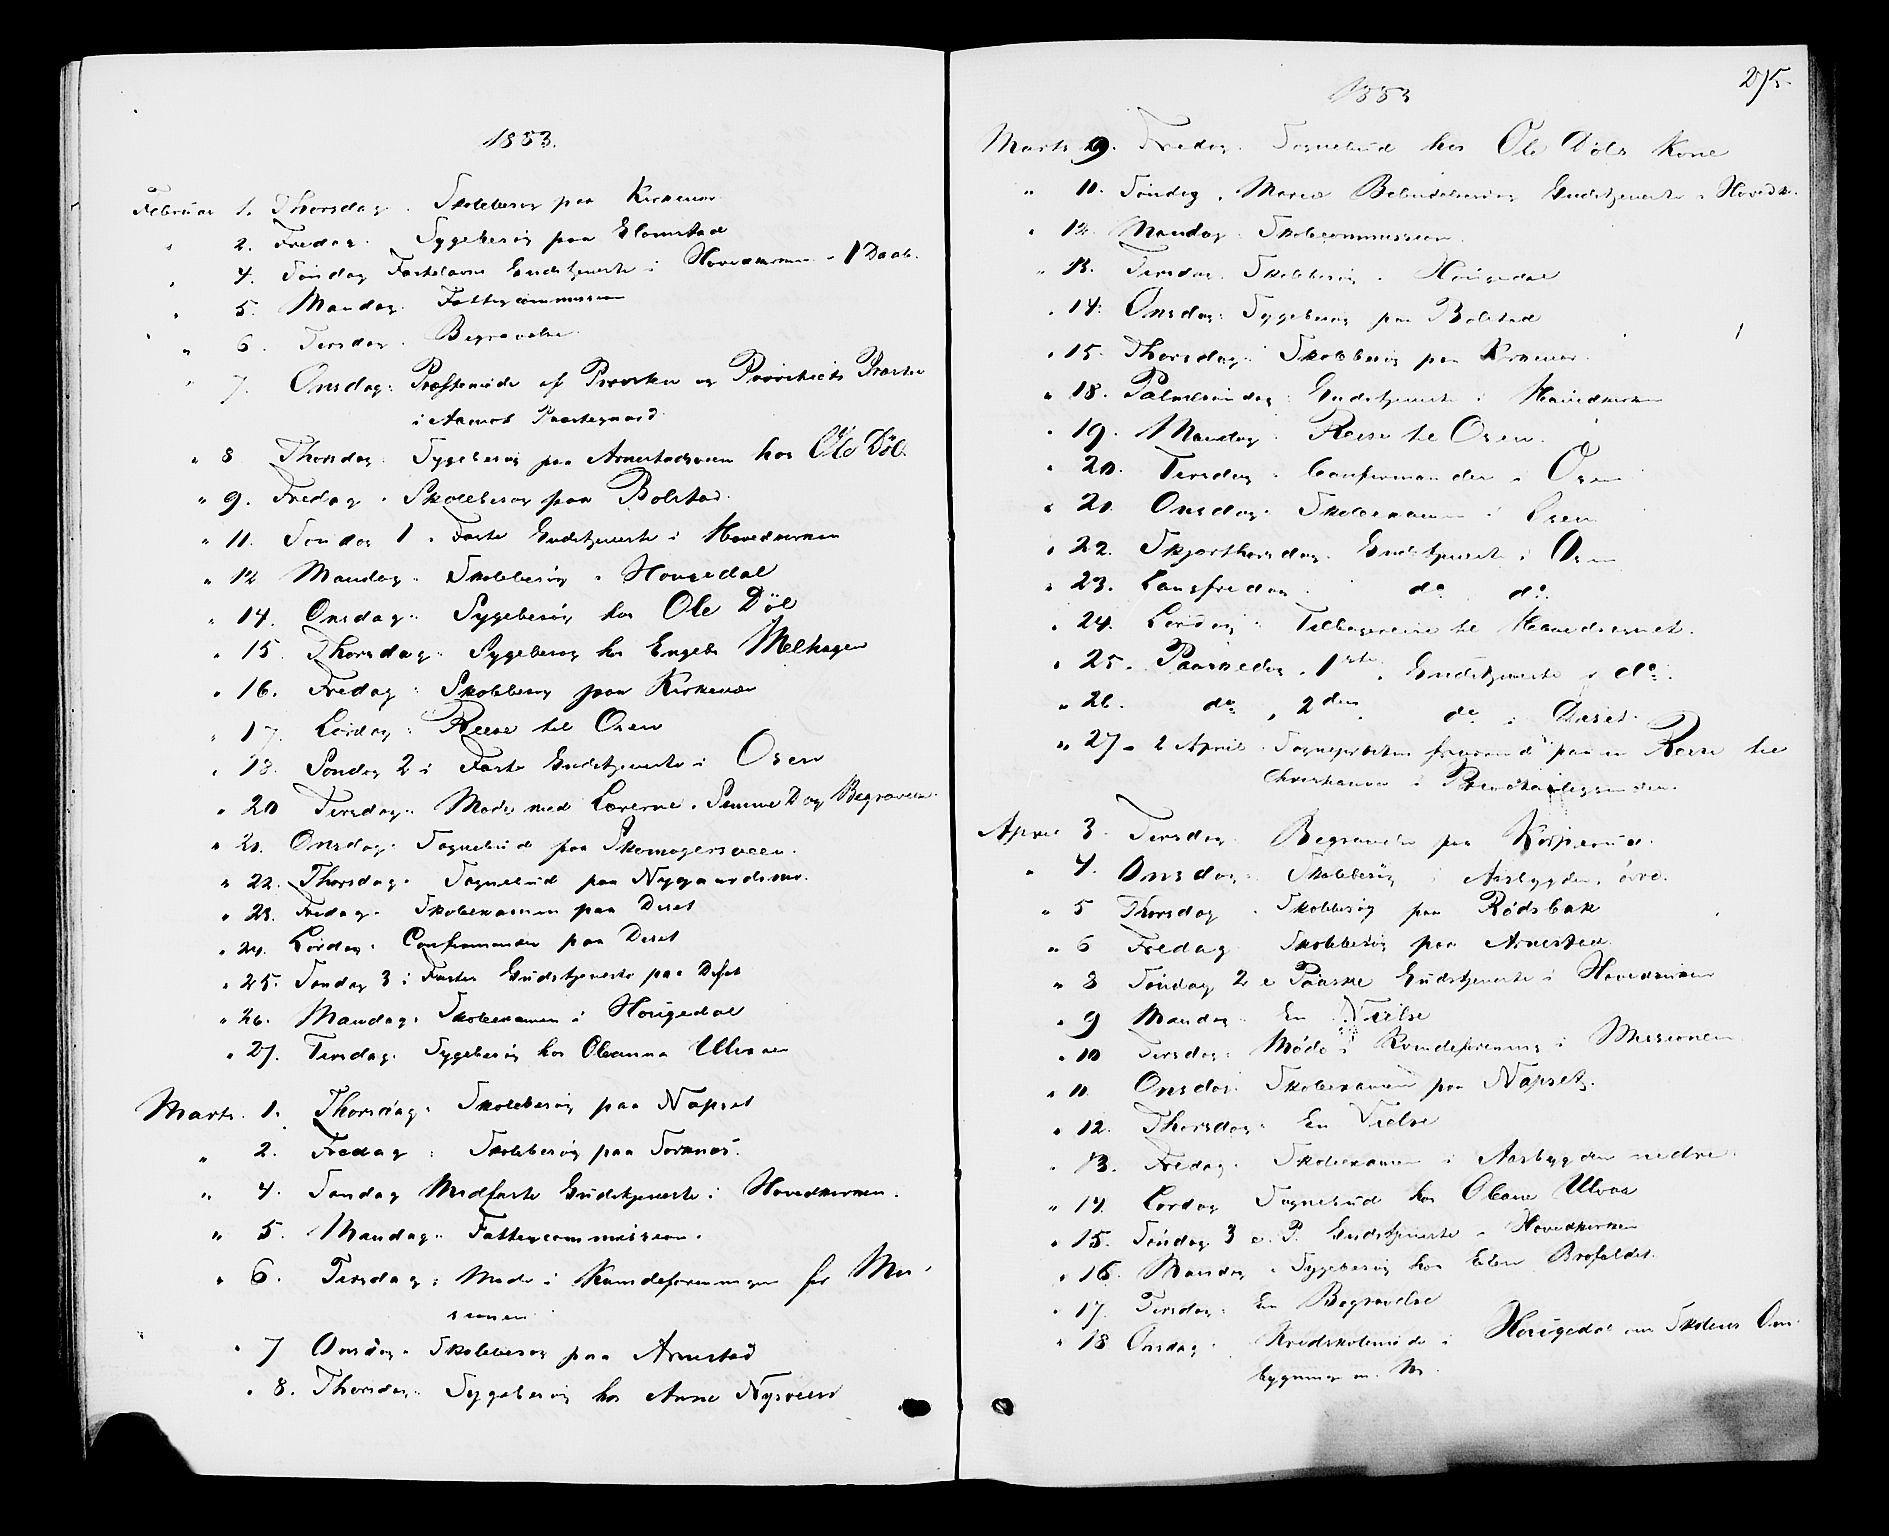 1883.
Februar 1. Thorsdag. Skolebesøg paa Kirkenær
" 2. Fredag. Sygebesøg paa Glomstad
" 4. Søndag Fastelavns Gudstjeneste i Hovedkirken - 1 Daab.
" 5. Mandag. Fattigcommission
" 6. Tirsdag. Begravelse.
" 7. Onsdag. Præstemøde af Provsten og Provstiets Præster
i Aamot Præstegaard.
" 8 Thorsdag. Sygebesøg paa Arnestadsveen hos Ole Döl.
" 9. Fredag. Skolebesøg paa Bolstad.
" 11. Søndag 1 i Faste Gudstjeneste i Hovedkirken
" 12 Mandag. Skolebesøg i Hovgedal
" 14. Onsdag. Sygebesøg hos Ole Döl
" 15. Thorsdag. Sygebesøg hos Engebr Melhagen
" 16. Fredag. Skolebesøg paa Kirkenær
" 17. Lørdag. Reise til Osen
" 18. Søndag 2 i Faste Gudstjeneste i Osen
" 20 Tirsdag. Møde med Lærerne. Samme D og Begravelse.
" 21. Onsdag. Sognebud paa Skomagersveen.
" 22. Thorsdag. Sognebud paa
" 23. Fredag. Skoleexamen paa Deset
" 24. Lørdag. Confirmander paa Deset
" 25. Søndag 3 i Faste Gudstjeneste paa Deset
" 26. Mandag. Skoleexamen i Hougedal
" 27. Tirsdag. Sygebesøg hos Oleanna Ulvaaen
Marts. 1. Thorsdag. Skolebesøg paa Napset
" 2. Fredag. Skolebesøg paa Sorknæs.
" 4. Søndag Midfaste Gudstjeneste i Hovedkirken.
" 5. Mandag. Fattigcommission.
" 6. Tirsdag. Møde i Kvindeforeningen for Mis-
sionen
" 7 Onsdag. Skolebesøg paa Arnestad
" 8. Thorsdag. Sygebesøg hos Anne Nysveen
1883
275.
Marts 9. Fredag. Sognebud hos Ole Döls Kone
" 11. Søndag. Mariæ Bebudelsesdag Gudstjeneste i Hovedk.
" 12. Mandag. Skolecommission.
" 13. Tirsdag. Skolebesøg i Hougedal
" 14. Onsdag. Sygebesøg paa Bolstad
" 15. Thorsdag. Skolebesøg paa Kirkenær.
" 18. Palmesøndag. Gudstjeneste i Hovedkirken
" 19. Mandag. Reise til Osen.
" 20. Tirsdag. Confirmander i Osen
" 21. Onsdag. Skoleexamen i Osen
" 22. Skjærthorsdag. Gudstjeneste i Osen
" 23. Langfredag. do do.
" 24. Lørdag. Tilbagereise til Hovedsognet.
" 25. Paaskedag. 1ste. Gudstjeneste i do.
" 26. do, 2den. do i Deset.
" 27 - 2 April. Sognepræsten fraværende paa en Reise til
Christiania i
April 3. Tirsdag. Begravelse paa
" 4. Onsdag. Skolebesøg i Aasbygden, øvre.
" 5 Thorsdag. Skolebesøg paa Rødsbak
" 6 Fredag. Skolebesøg paa Arnestad.
" 8 Søndag 2 e Paaske Gudstjeneste i Hovedkirken
" 9 Mandag. En Vielse
" 10 Tirsdag. Møde i Kvindeforening i Missionen
" 11. Onsdag. Skoleexamen paa Napset.
" 12. Thorsdag. En Vielse
" 13. Fredag. Skoleexamen i Aasbygden nedre.
" 14. Lørdag Sognebud hos Oleane Ulvaa
" 15. Søndag 3 e. P. Gudstjeneste i Hovedkirken
" 16. Mandag. Sygebesøg hos Elen Brofaldet.
" 17. Tirsdag. En Begravelse
" 18 Onsdag. Kredsskolemøde i Hougedal om Skolens Om-
bygning m. M.